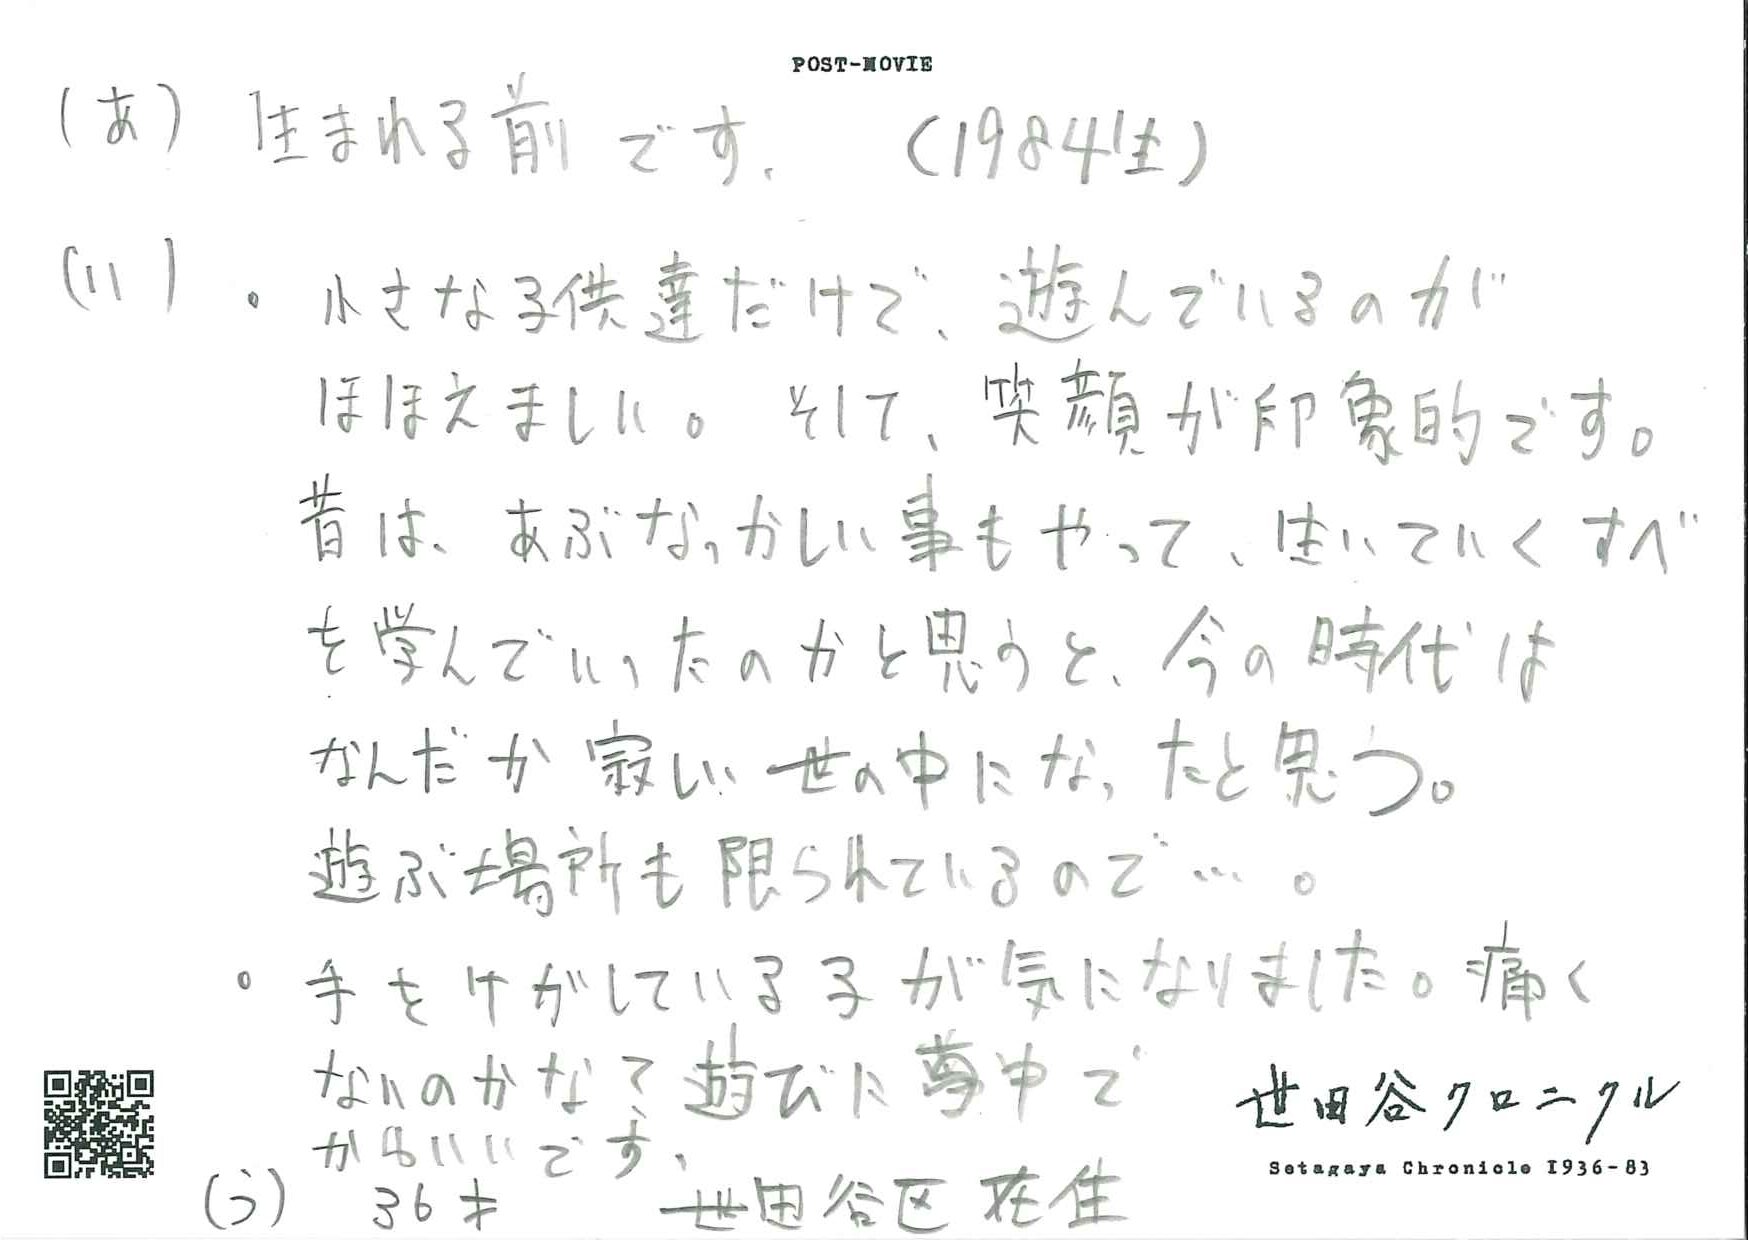 POST-MOVIE
(あ) 生まれる前です。 (1984生)
(い) ・小さな子供達だけで、遊んでいるのが
ほほえましい。そして、笑顔が印象的です。
昔は、あぶなっかしい事もやって、生いていくすべ
を学んでいったのかと思うと、今の時代は
なんだか寂しい世の中になったと思う。
遊ぶ場所も限られているので…。
・手をけがしている子が気になりました。痛く
ないのかな?遊びに夢中で
かわいいです。
(う) 36才 世田谷区在住
世田谷クロニクル
Setagaya Chronicle 1936-83